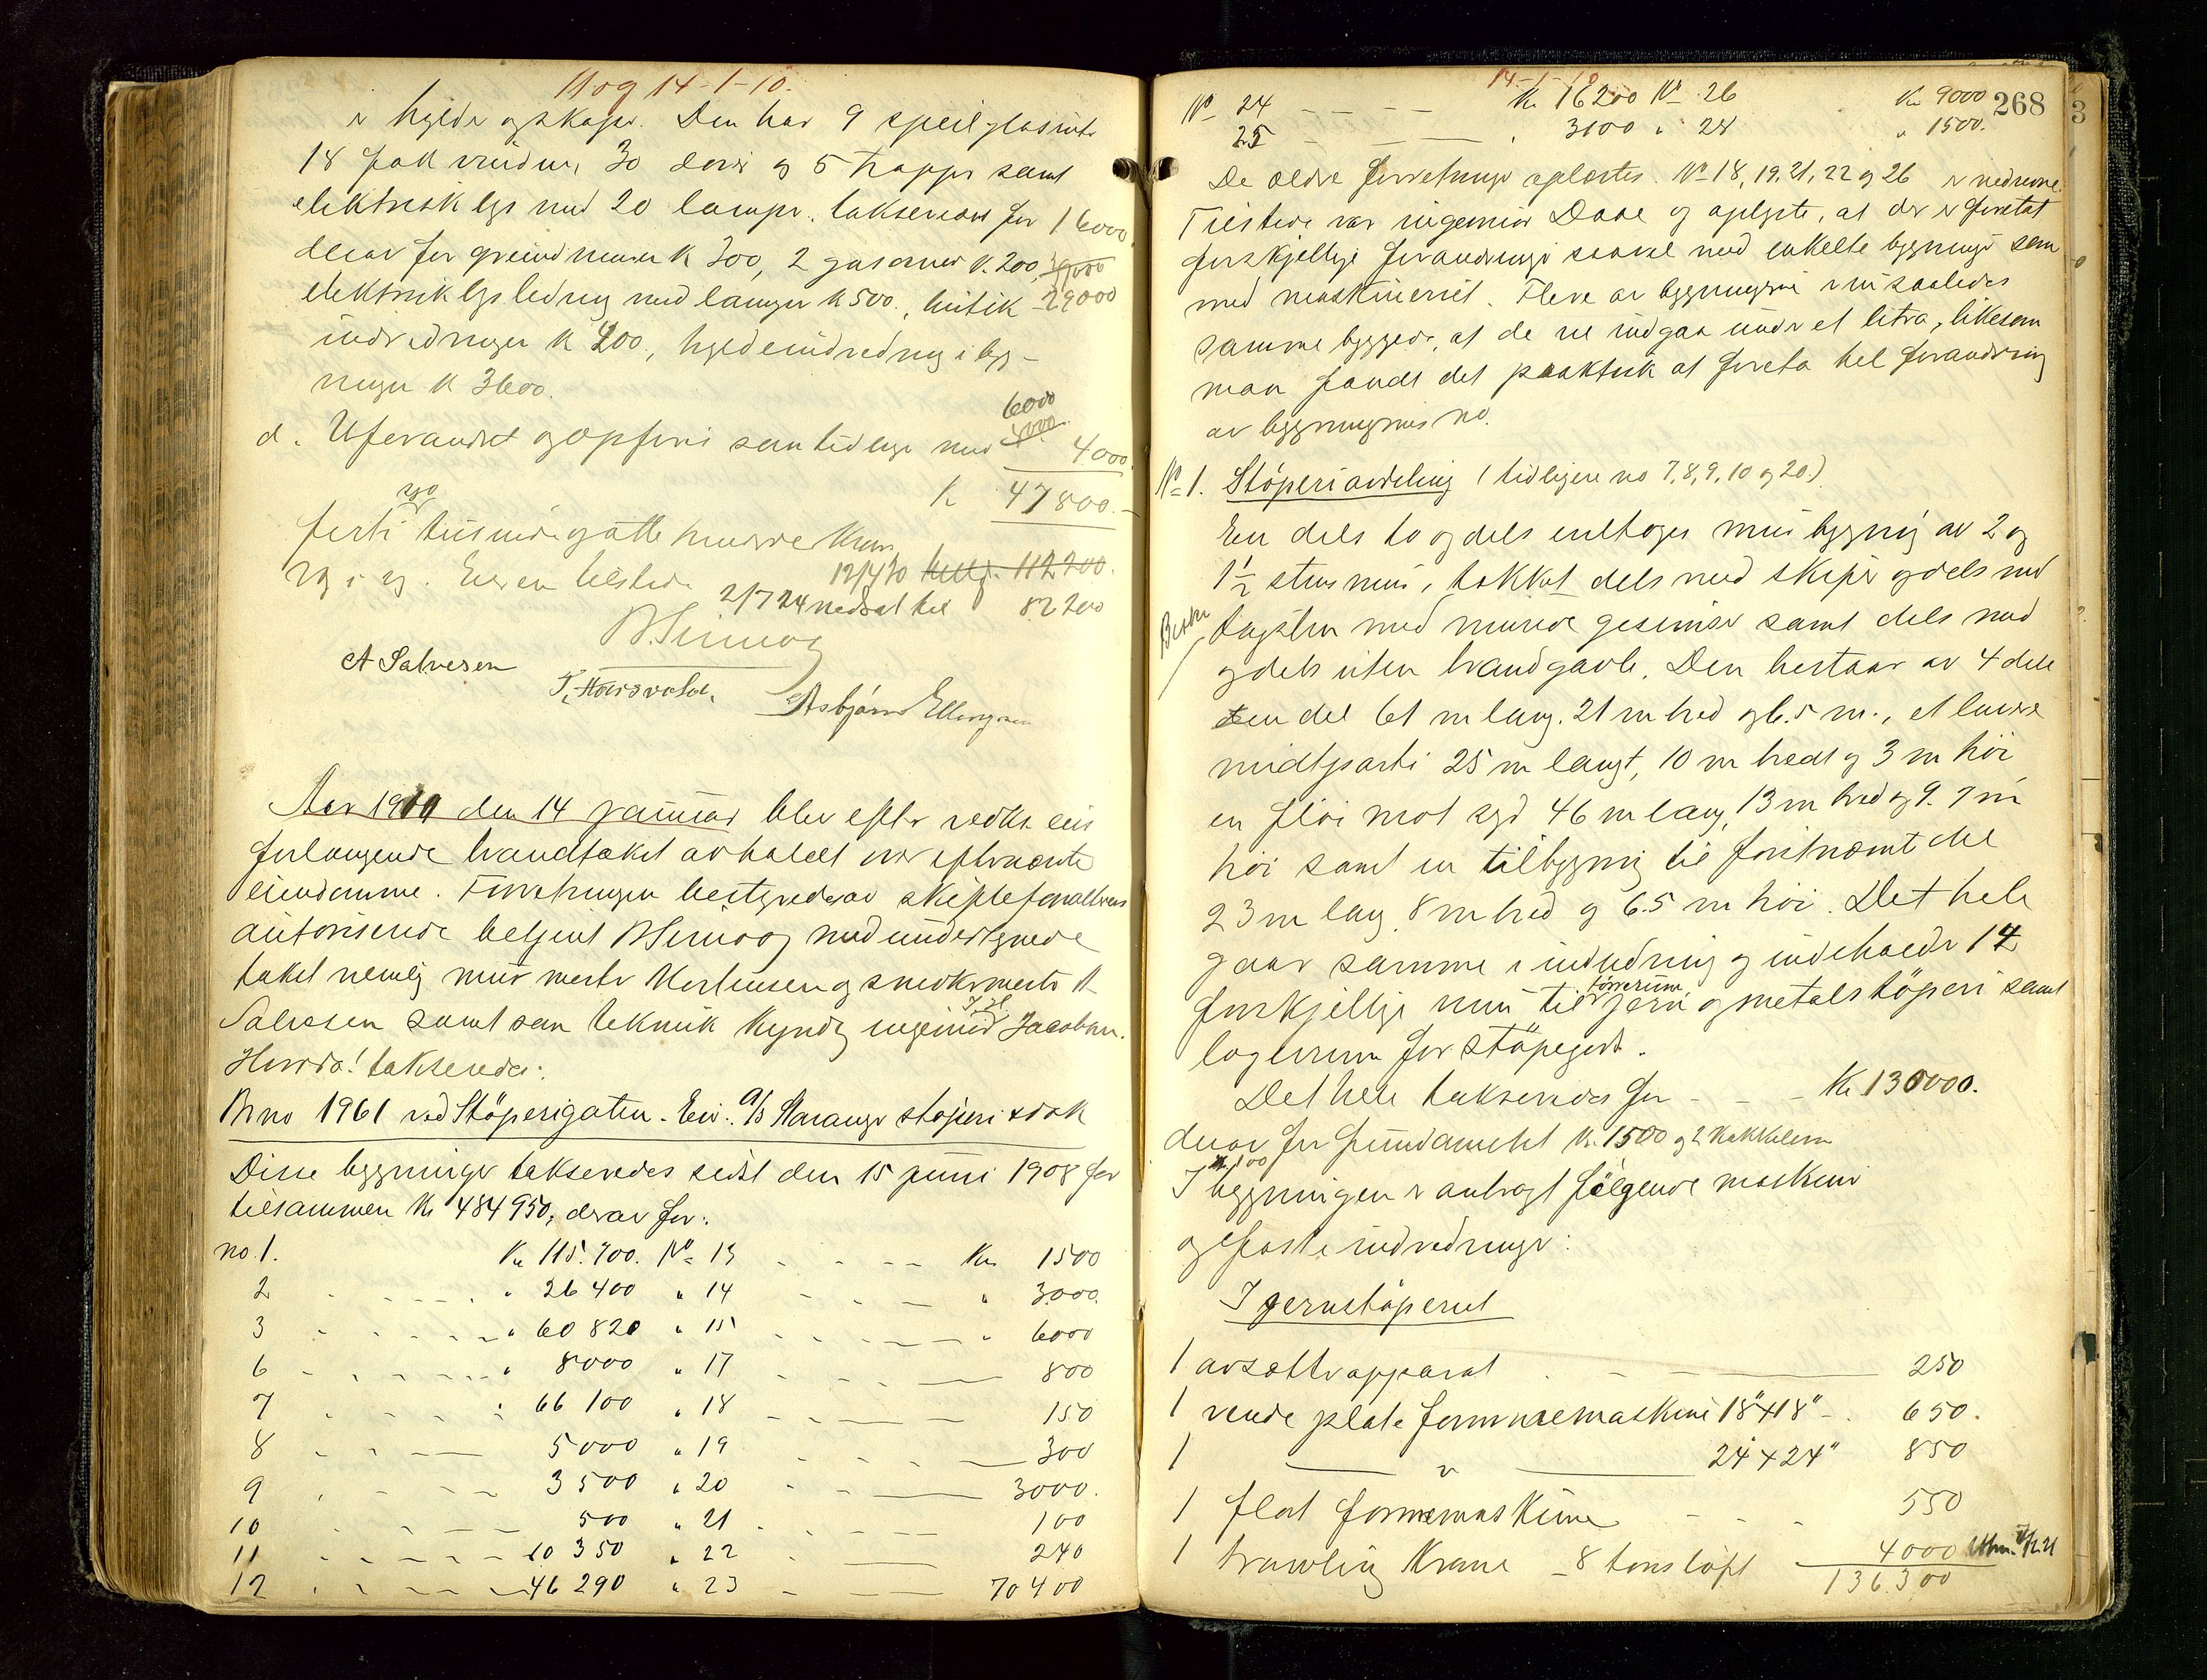 11 og 14-1-10.
i hylder og skaper. Den har 9 speilglasruter
18 fall vinduer, 30 dører og 5 trapper samt
elektrisk lys med 20 lamper. takseres for 16000
derav for grundmuren K 300, 2 gasovner K. 200, 
elektrisk lys ledning med lamper K 500., butik 29000
indredninger K 200., hyldeindredning i byg-
ningen K 3600.
6000
d. Uforandret og opføres som tidligere med 4000.
K 47800.-
syv
førti tusinde og otte hundre Kroner
12/4 20 112200.
Eieren tilstede
2/7 24 nedsat til 82200
A Salvesen
Asbjørn Ellingsen
Aar 1910 den 14 januar blev efter vedk. eiers
forlangende brandtakst avholdt over efternævnte
eiendomme. Forretningen bestyredes av skifteforvalterens
autoriserte betjent med undertegnede
takst nemlig murmester Mortensen og snedkermester A
Salvesen samt som teknisk kyndig ingeniør Jacobsen.
Hvorda! takseredes:
Br no 1961 ved Støperigaten. Eier: A/S Stavanger støperi & dok
Disse bygninger takseredes sidst den 15 juni 1908 for
tilsammen Kr 484950, derav for:
no. 1. Kr 115.700. No 13 Kr 1500
2 " 26400 " 14 " 3000.
3 " 60820 " 15 " 6000
6 " 8000 " 17 800
7 " 66100 " 18 150
8 5000 " 19 300
9 3500 " 20 3000.
10 500 " 21 100
11 10350 " 22 240
12 46290 " 23 70400
14-1-10
268
No 24 Kr 16200 No 26 Kr 9000
25 " 3100 " 28 " 1500.
De ældre forretninger oplæstes. No 18, 19, 21, 22 og 26 er nedrevne.
Tilstede var ingeniør Daae og oplyste, at der er foretat
forskjellige forandringer saavel med enkelte bygninger som
med maskineriet. Flere av bygningerne er nu saaledes
sammenbyggede, at de vil indgaa under et litra, likesom
man fandt det praktisk at foreta hel forandring
av bygningernes no.
No 1. Støperiavdeling (tidligere no 7, 8, 9, 10 og 20.)
En dels to og dels enetages mur bygning av 2 og
1 1/2 stens mur, tækket dels med skifer og dels med
tagsten med murede gesimser samt dels med
og dels uten brandgavle. Den bestaar av 4 dele
en del 61 m lang. 21 m bred og 6.5 m., et lavere
midtparti 25 m langt, 10 m bredt og 3 m høi
en fløi mot syd 46 m lang, 13 m bred og 9.7 m
høi samt en tilbygning til førstnævnt del
23 m lang 8 m bred og 6.5 m høi. Det hele
gaar sammen i indredning og indeholder 14
tørrerum
forskjellige rum til jern og metalstøperi samt
lagerrum for støpegods.
Det hele takseredes for - - - Kr 130000.
derav for fundamentet K. 1500 og 2 kakkelovn
K. 100
I bygningen er anbragt følgende maskiner
og faste indredninger:
I jernstøperiet
1 avsætterapparat 250
1 vende plate formmemaskine 18"x18" 650.
1 " 24"x24" 850
1 flat formemaskine 550
1 traveling Krane - 8 tons løft 4000
136.300